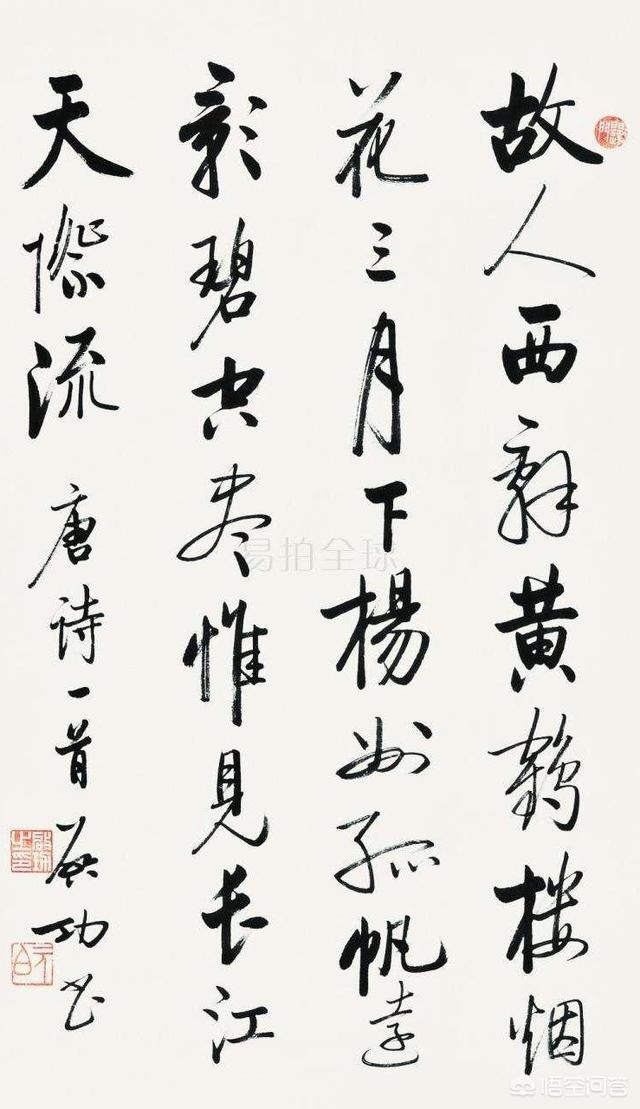 故人西辭黄鶴楼烟
花三月下楊州孤帆遠
影碧空盡惟見长江
天際流 唐诗一首 启功书
元白
易拍全球
悟空问答